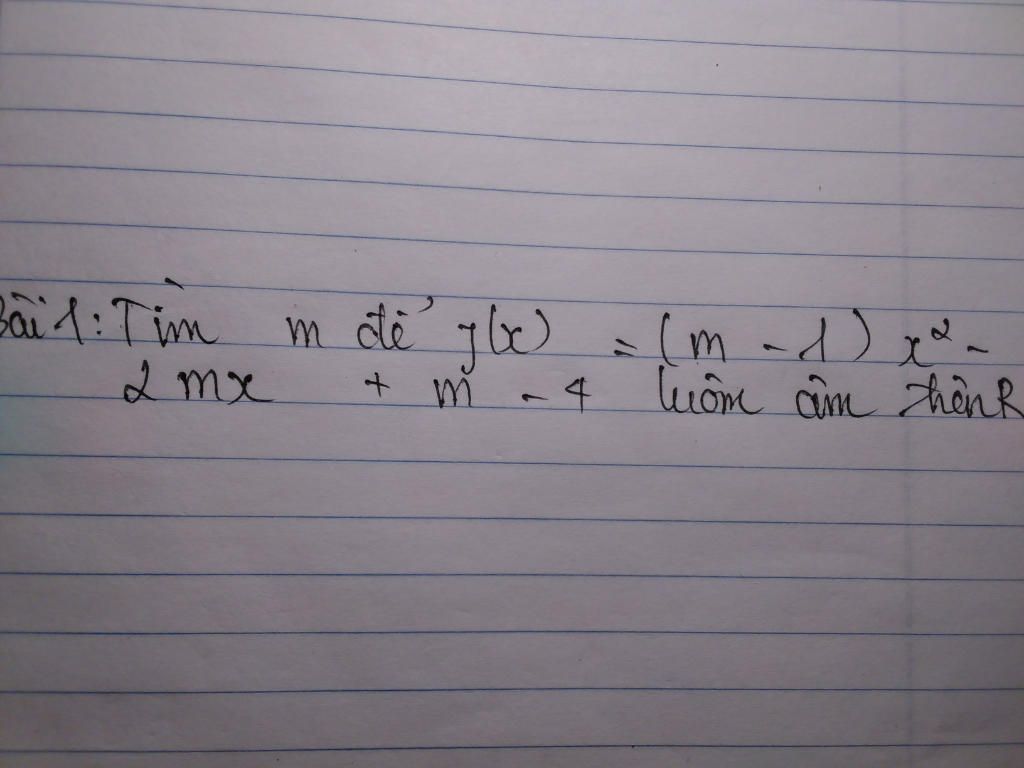 Bài 1: Tìm m để f(x) = (m - 1) x² -
2mx + m - 4 luôm âm trên R